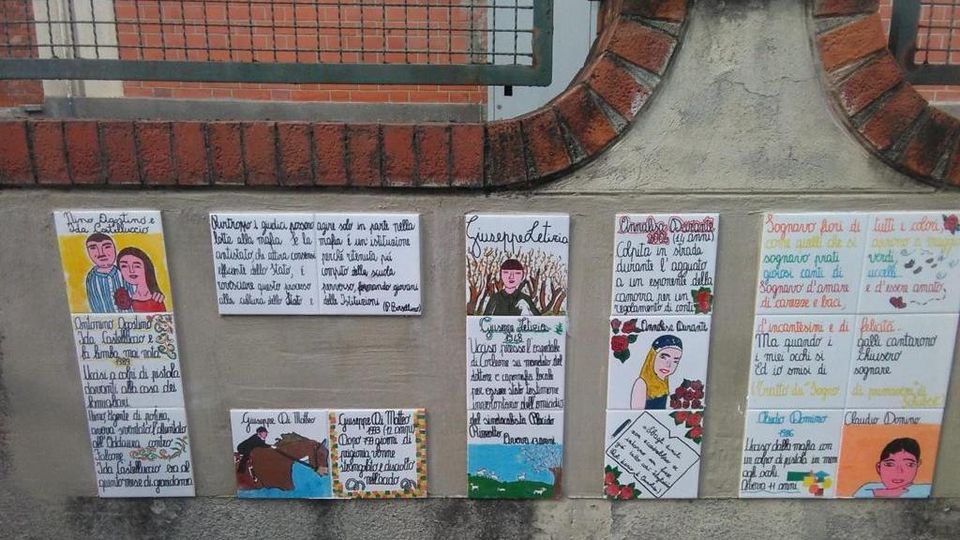 Nino Agostino e
Ida Castelluccio
Antonino Agostino
Ida Castelluccio e
la bimba mai nata
1989
Uccisi a colpi di pistola
davanti alla casa dei
famigliari
Nino Agente di polizia,
aveva sventato l'attentato
all'Addaura contro
Falcone
Ida Castelluccio era al
quinto mese di gravidanza
Purtroppo i giudici possono agire solo in parte nella
lotta alla mafia. Se la mafia è un'istituzione
antistato che attira consensi perché ritenuta più
efficiente dello Stato, è compito della scuola
rovesciare questo processo perverso, formando giovani
alla cultura dello Stato e delle Istituzioni
(P. Borsellino)
Giuseppe Di Matteo
Giuseppe Di Matteo
1993 (12 anni)
Dopo 779 giorni di
prigionia venne
strangolato e disciolto
nell'acido
Giuseppe Letizia
Giuseppe Letizia
1948
Ucciso presso l'ospedale
di Corleone su mandato del
dottore e capomafia locale
per essere stato testimone
involontario dell'omicidio
del sindacalista Placido
Rizzotto
Aveva 13 anni
Annalisa Durante
2004 (14 anni)
Colpita in strada
durante l'agguato
a un esponente della
camorra per un
regolamento di conti
Annalisa Durante
Sognavo fiori di tutti i colori,
come quelli che si
sognavo prati verdi
gioiosi canti di uccelli
Sognavo d'amare e d'essere amato
di carezze e baci
d'incantesimi e di felicità...
Ma quando i galli cantarono
i miei occhi si chiusero
Ed io smisi di sognare
(Tratto da "Sogno di primavera"
Claudio Domino
1986
Ucciso dalla mafia con
un colpo di pistola in mezzo
agli occhi.
Aveva 11 anni
Claudio Domino